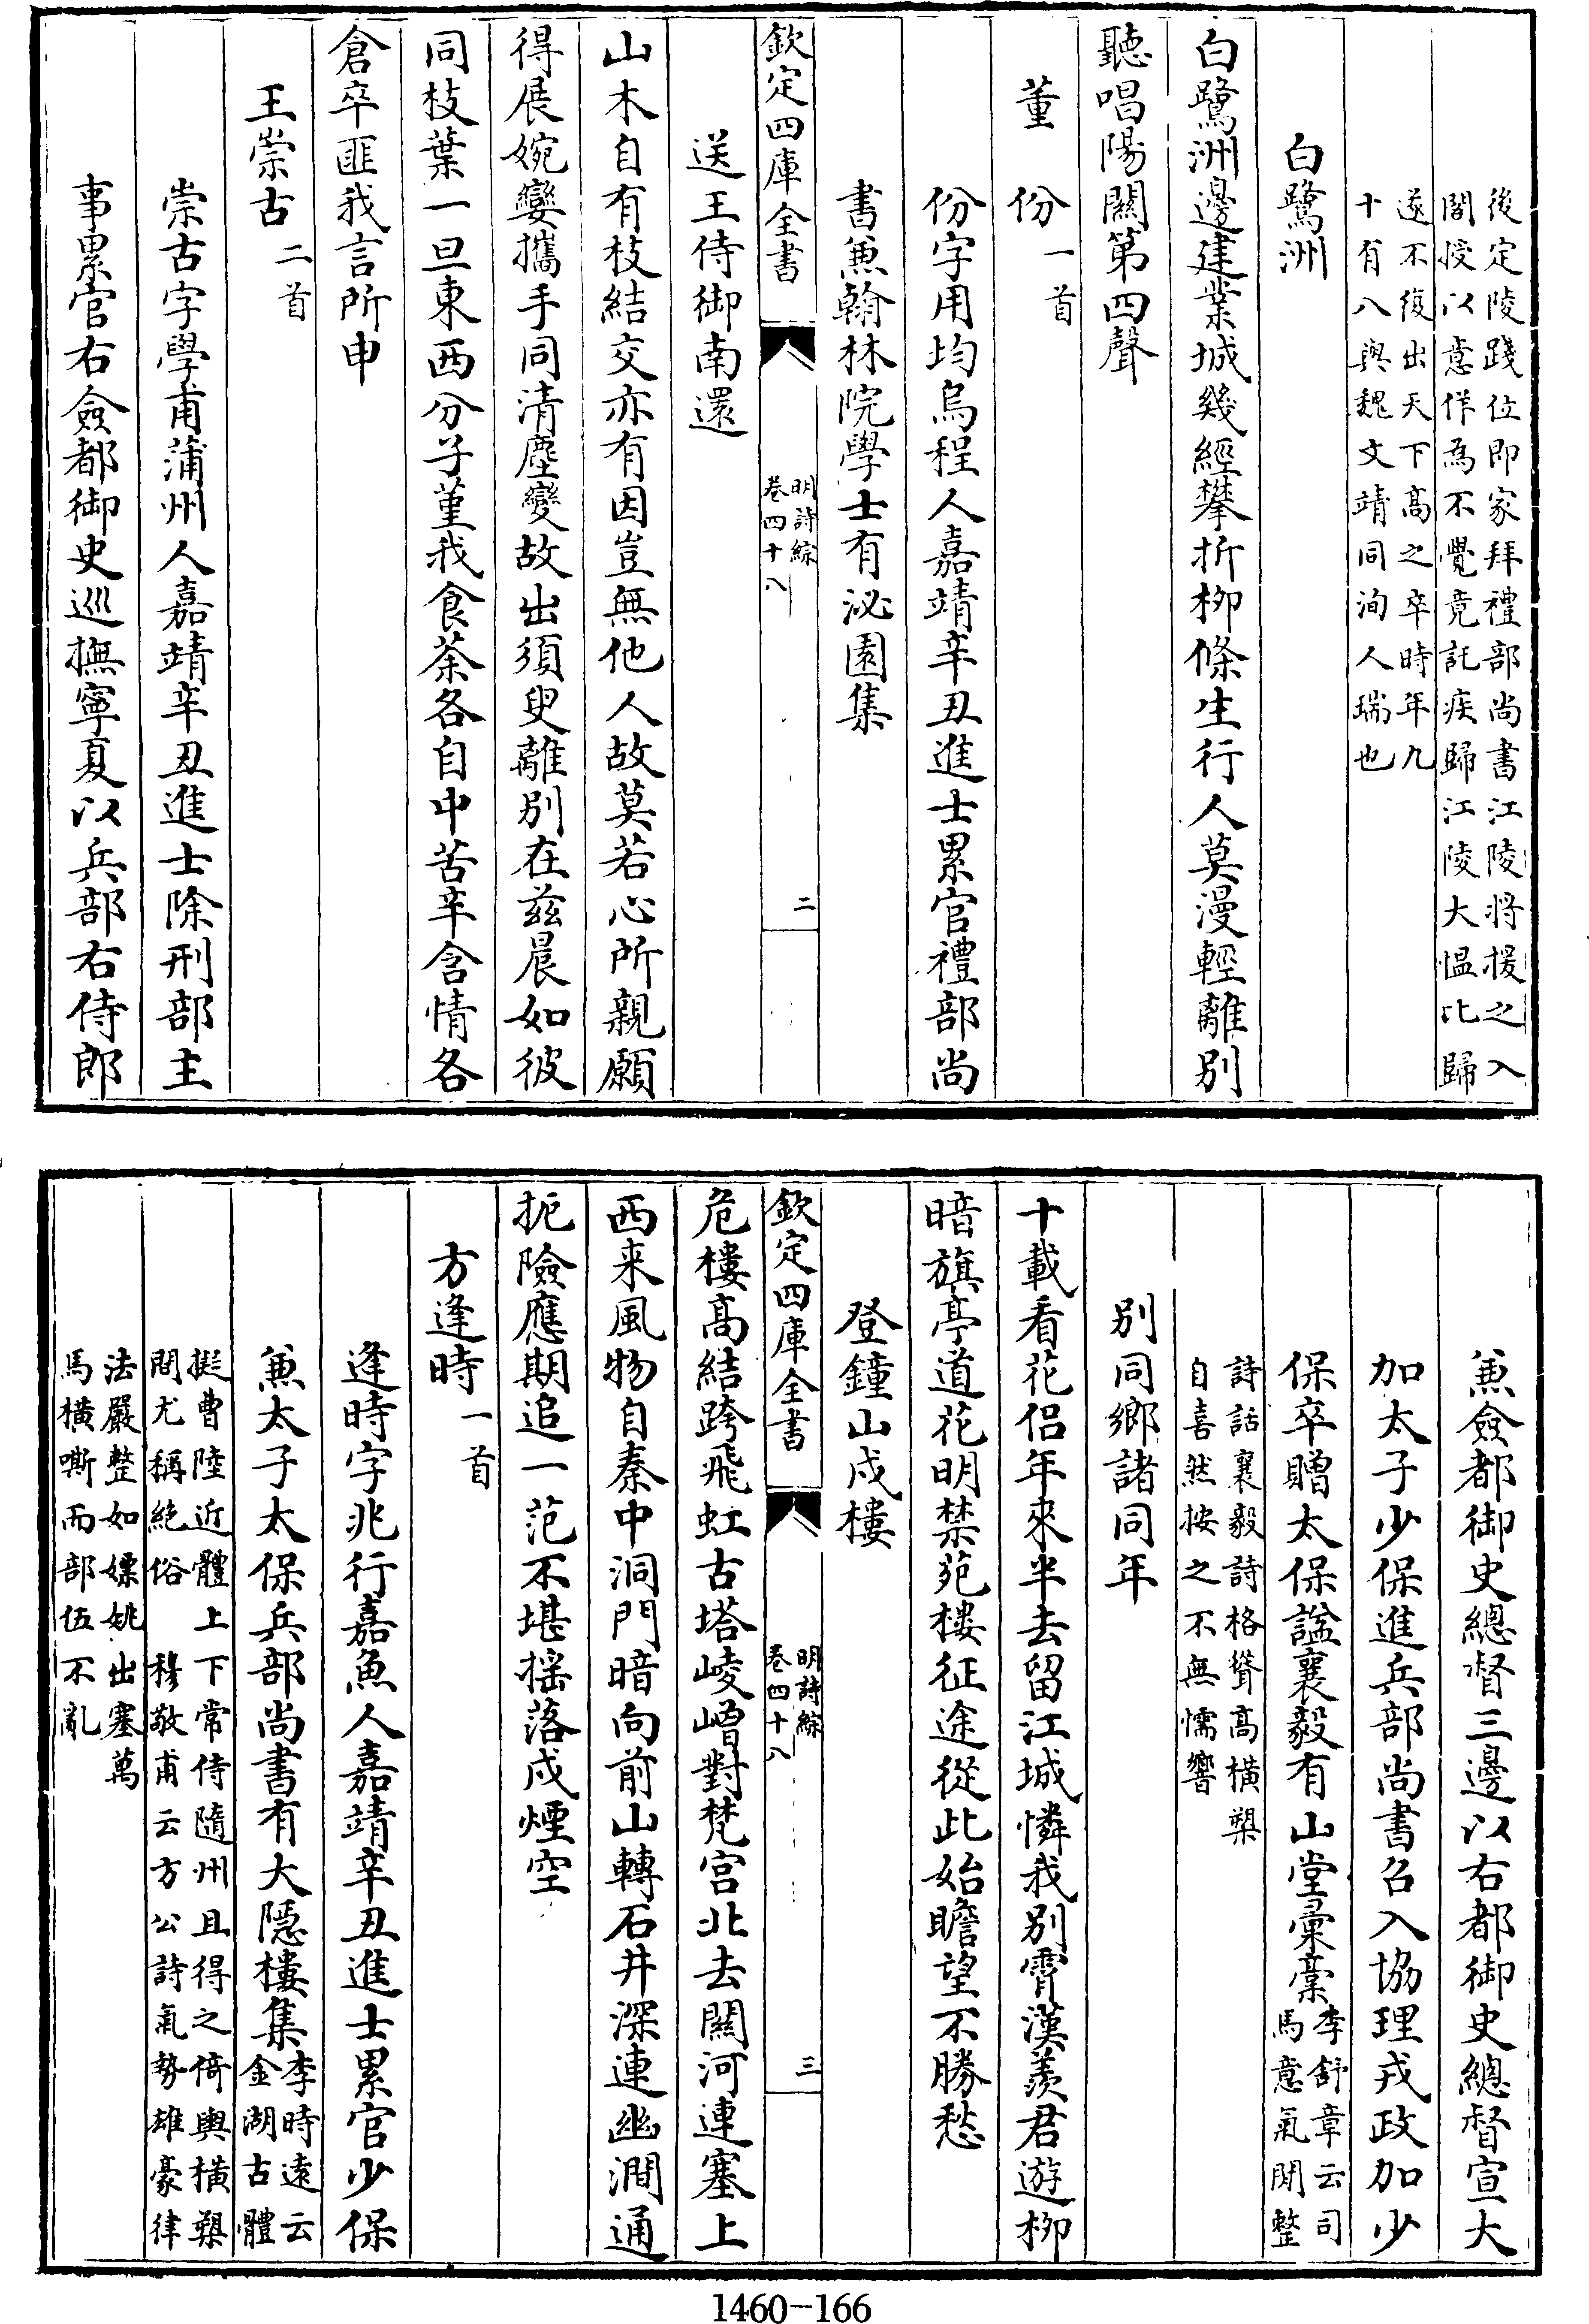 後定陵踐位即家拜禮部尚書江陵將援之入
閣授以意佯為不覺竟託疾歸江陵大愠比歸
遂不復出天下高之卒時年九
十有八與魏文靖同洵人瑞也
白鷺洲
白鷺洲邊建業城幾經攀折柳條生行人莫漫輕離別
聽唱陽關第四聲
董份一首
份字用均烏程人嘉靖辛丑進士累官禮部尚
書兼翰林院學士有泌園集
欽定四庫全書
明詩綜
卷四十八
二
送王侍御南還
山木自有枝結交亦有因豈無他人故莫若心所親願
得展婉孌攜手同清塵變故出須臾離別在兹晨如彼
同枝葉一旦東西分子堇我食荼各自中苦辛含情各
倉卒匪我言所申
王崇古二首
崇古字學甫蒲州人嘉靖辛丑進士除刑部主
事累官右僉都御史巡撫寧夏以兵部右侍郎
兼僉都御史總督三邊以右都御史總督宣大
加太子少保進兵部尚書召入協理戎政加少
保卒贈太保諡襄毅有山堂彙稾李舒章云司
馬意氣閒整
詩話襄毅詩格聳高橫槊
自喜然按之不無懦響
別同鄉諸同年
十載看花侶年來半去留江城憐我別霄漢羨君遊柳
暗旗亭道花明禁苑樓征途從此始瞻望不勝愁
登鐘山戍樓
欽定四庫全書
明詩綜
卷四十八
三
危樓高結跨飛虹古塔崚嶒對梵宫北去關河連塞上
西来風物自秦中洞門暗向前山轉石井深連幽澗通
扼險應期追一范不堪摇落戍煙空
方逢時一首
逢時字兆行嘉魚人嘉靖辛丑進士累官少保
兼太子太保兵部尚書有大隱樓集李時遠云
金湖古體
擬曹陸近體上下常侍隨州且得之倚輿橫槊
間尤稱絶俗 穆敬甫云方公詩氣勢雄豪律
法嚴整如嫖姚出塞萬
馬橫嘶而部伍不亂
1460-166